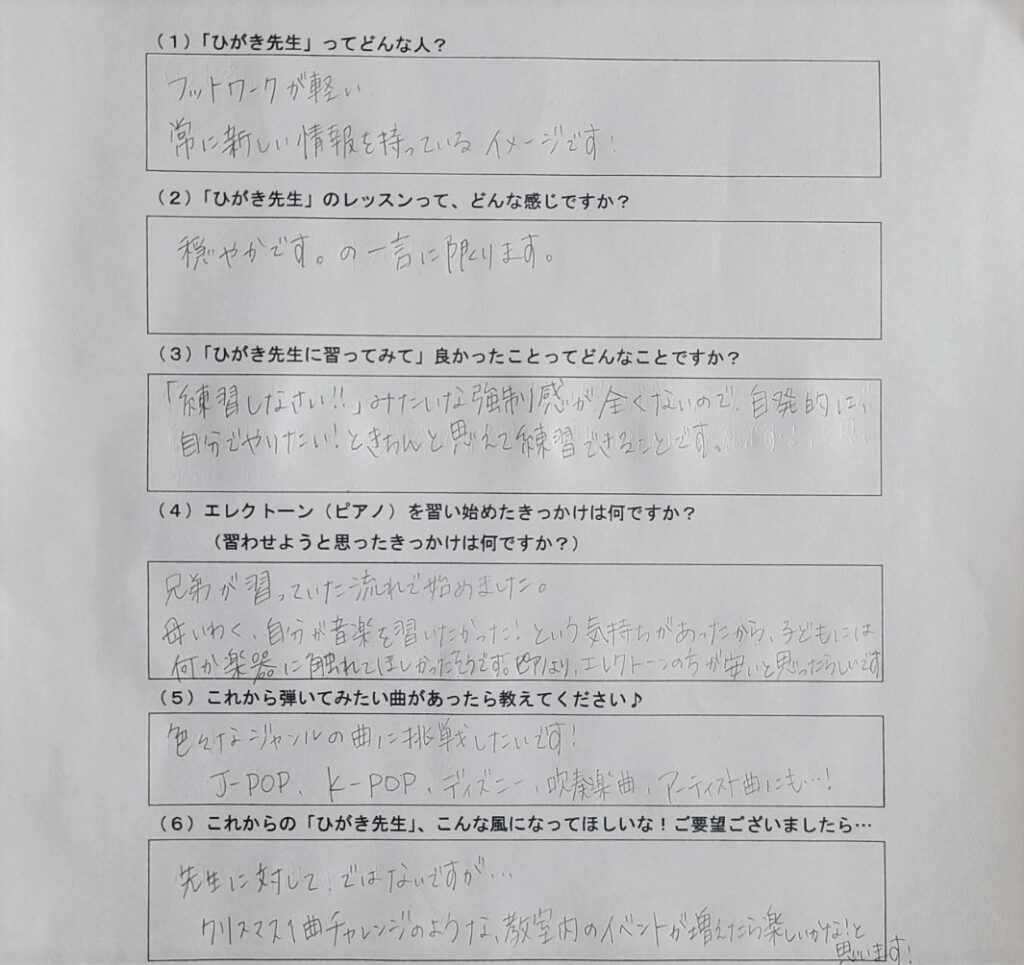 (1)「ひがき先生」ってどんな人?
フットワークが軽い
常に新しい情報を持っている イメージです!
(2)「ひがき先生」のレッスンって、どんな感じですか?
穏やかです。の一言に限ります。
(3)「ひがき先生に習ってみて」良かったことってどんなことですか?
「練習しなさい!!」みたいな強制感が全くないので、自発的に、
自分でやりたい!ときちんと思えて練習できることです。
(4)エレクトーン(ピアノ)を習い始めたきっかけは何ですか?
(習わせようと思ったきっかけは何ですか?)
兄弟が習っていた流れで始めました。
母いわく、自分が音楽を習いたかった!という気持ちがあったから、子どもには
何か楽器に触れてほしかったそうです。ピアノより、エレクトーンのちが安いと思ったらしいです
(5)これから弾いてみたい曲があったら教えてください♪
色々なジャンルの曲に挑戦したいです!
J-POP、K-POP、ディズニー、吹奏楽曲、アーティスト曲にも…!
(6)これからの「ひがき先生」、こんな風になってほしいな!ご要望ございましたら…
先生に対して、ではないですが…
クリスマス1曲チャレンジのような、教室内のイベントが増えたら楽しいかな!と
思います!